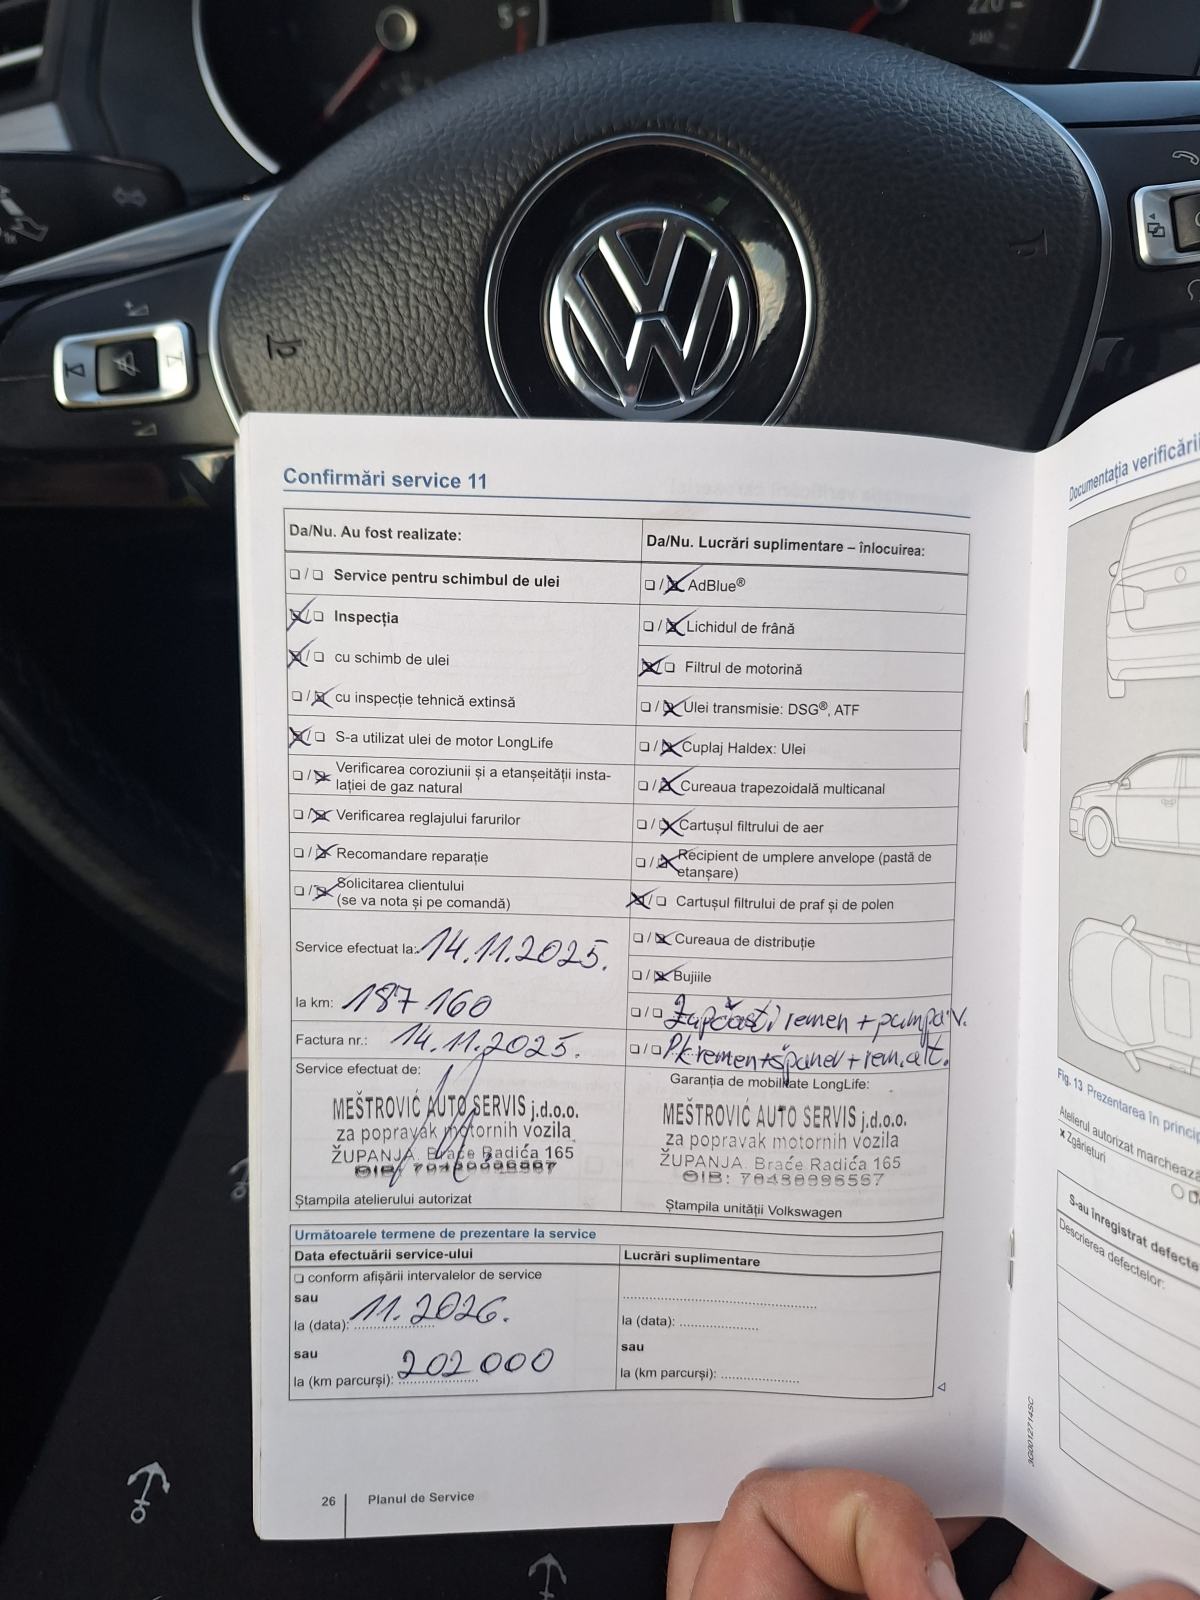 220
240
5
Confirmări service 11
Da/Nu. Au fost realizate:
Da/Nu. Lucrări suplimentare – înlocuirea:
❏ / ❏ Service pentru schimbul de ulei
❏ / ❏ AdBlue®
❏ / ❏ Inspecția
❏ / ❏ Lichidul de frână
❏ / ❏ cu schimb de ulei
❏ / ❏ Filtrul de motorină
❏ / ❏ cu inspecție tehnică extinsă
❏ / ❏ Ulei transmisie: DSG®, ATF
❏ / ❏ S-a utilizat ulei de motor LongLife
❏ / ❏ Cuplaj Haldex: Ulei
❏ / ❏ Verificarea coroziunii și a etanșeității insta-
lației de gaz natural
❏ / ❏ Cureaua trapezoidală multicanal
❏ / ❏ Verificarea reglajului farurilor
❏ / ❏ Cartușul filtrului de aer
❏ / ❏ Recomandare reparație
❏ / ❏ Recipient de umplere anvelope (pastă de
etanșare)
❏ / ❏ Solicitarea clientului
(se va nota și pe comandă)
❏ / ❏ Cartușul filtrului de praf și de polen
Service efectuat la: 14.11.2025.
❏ / ❏ Cureaua de distribuție
❏ / ❏ Bujiile
la km: 187 160
❏ / ❏ Zupčasti remen + pumpa v.
Factura nr.: 14.11.2025.
❏ / ❏ PK remen + španer + rem. alt.
Service efectuat de:
Garanția de mobilitate LongLife:
MEŠTROVIĆ AUTO SERVIS j.d.o.o.
za popravak motornih vozila
ŽUPANJA. Braće Radića 165
OIB: 70430996567
Ștampila atelierului autorizat
MEŠTROVIĆ AUTO SERVIS j.d.o.o.
za popravak motornih vozila
ŽUPANJA. Braće Radića 165
OIB: 70430996567
Ștampila unității Volkswagen
Următoarele termene de prezentare la service
Data efectuării service-ului
Lucrări suplimentare
❏ conform afișării intervalelor de service
sau
la (data): 11.2026.
la (data):
sau
sau
la (km parcurși): 202 000
la (km parcurși):
26
Planul de Service
3G0012714SC
Documentația verificării
Fig. 13 Prezentarea în princip
Atelierul autorizat marchează
x Zgârieturi
S-au înregistrat defecte
Descrierea defectelor: